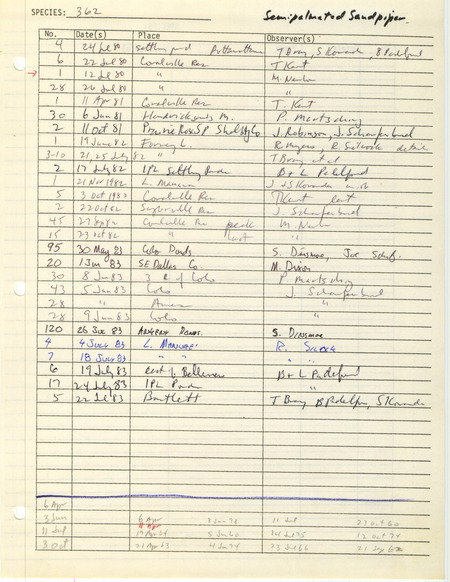 SPECIES: 362 Semipalmated Sandpiper
No. Date(s) Place Observer(s)
4 24 Jul 80 settling pond Pottawattamie T Bray, S Kovanda, B Padelford
6 22 Jul 80 Coralville Res T Kent
→ 1 12 Jul 80 " M. Newlon
28 26 Jul 80 " "
1 11 Apr 81 Coralville Res T. Kent
30 6 Jun 81 P. Martsching
2 11 Oct 81 Prairie Rose SP Shelby Co J. Robinson, J. Schaufenbuel
1 19 June 82 R. Myers, R. Silcock details
3-10 21, 25 July 82 " T Bray et al
2 17 July 82 IPL Settling Ponds B + L Padelford
1 21 Nov 1982 L. Manawa
5 3 Oct 1982 Coralville Res T Kent last
2 22 Oct 82 Saylorville Res J. Schaufenbuel
45 27 82 Coralville Res peak M. Newlon
15 23 Oct 82 " last "
95 30 May 83 Colo Ponds S. Dinsmore, Joe Schuf.
20 1 Jun 83 SE Dallas Co M. Dixon
30 8 Jun 83 Colo P. Martsching
43 5 Jun 83 Colo J. Schaufenbuel
28 " Ames "
28 9 Jun 83 Colo "
120 26 83 Ponds. S. Dinsmore
4 4 July 83 L. Manawa R. Silcock
7 18 July 83 " " " "
6 19 July 83 East of Bellevue B + L Padelford
17 24 July 83 IPL Ponds "
5 22 Jul 83 Bartlett T Bray B Padelford, S Kovanda
6 Apr
3 Jun 6 Apr 8 Jun 78 11 Jul 23 Oct 60
11 Jul 19 Apr 64 5 Jun 60 14 Jul 75 12 Oct 74
3 Oct 21 Apr 63 4 Jun 74 23 Jul 66